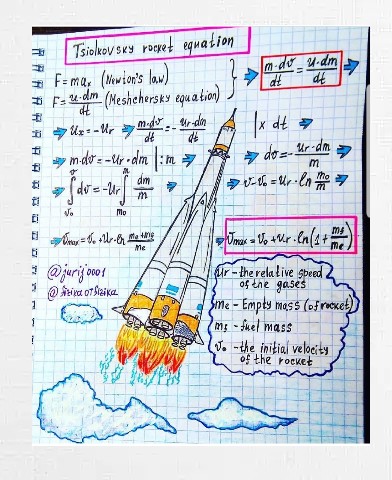 Tsiolkovsky rocket equation
F = ma_x (Newton's law)
F = u·dm/dt (Meshchersky equation)
m·dv/dt = u·dm/dt
u_x = -u_r m·dv/dt = -u_r·dm/dt | x dt
m·dv = -u_r·dm | : m dv = -u_r·dm/m
∫_{v₀}^{v} dv = -u_r ∫_{m₀}^{m} dm/m v-v₀ = u_r·ln m₀/m
v_max = v₀ + u_r·ln (m₀+m_f)/m_e v_max = v₀ + u_r·ln(1 + m_f/m_e)
@jurij0001
@fizika_ot_fizika
u_r - the relative speed
of the gases
m_e - Empty mass (of rocket)
m_f - fuel mass
v₀ - the initial velocity
of the rocket